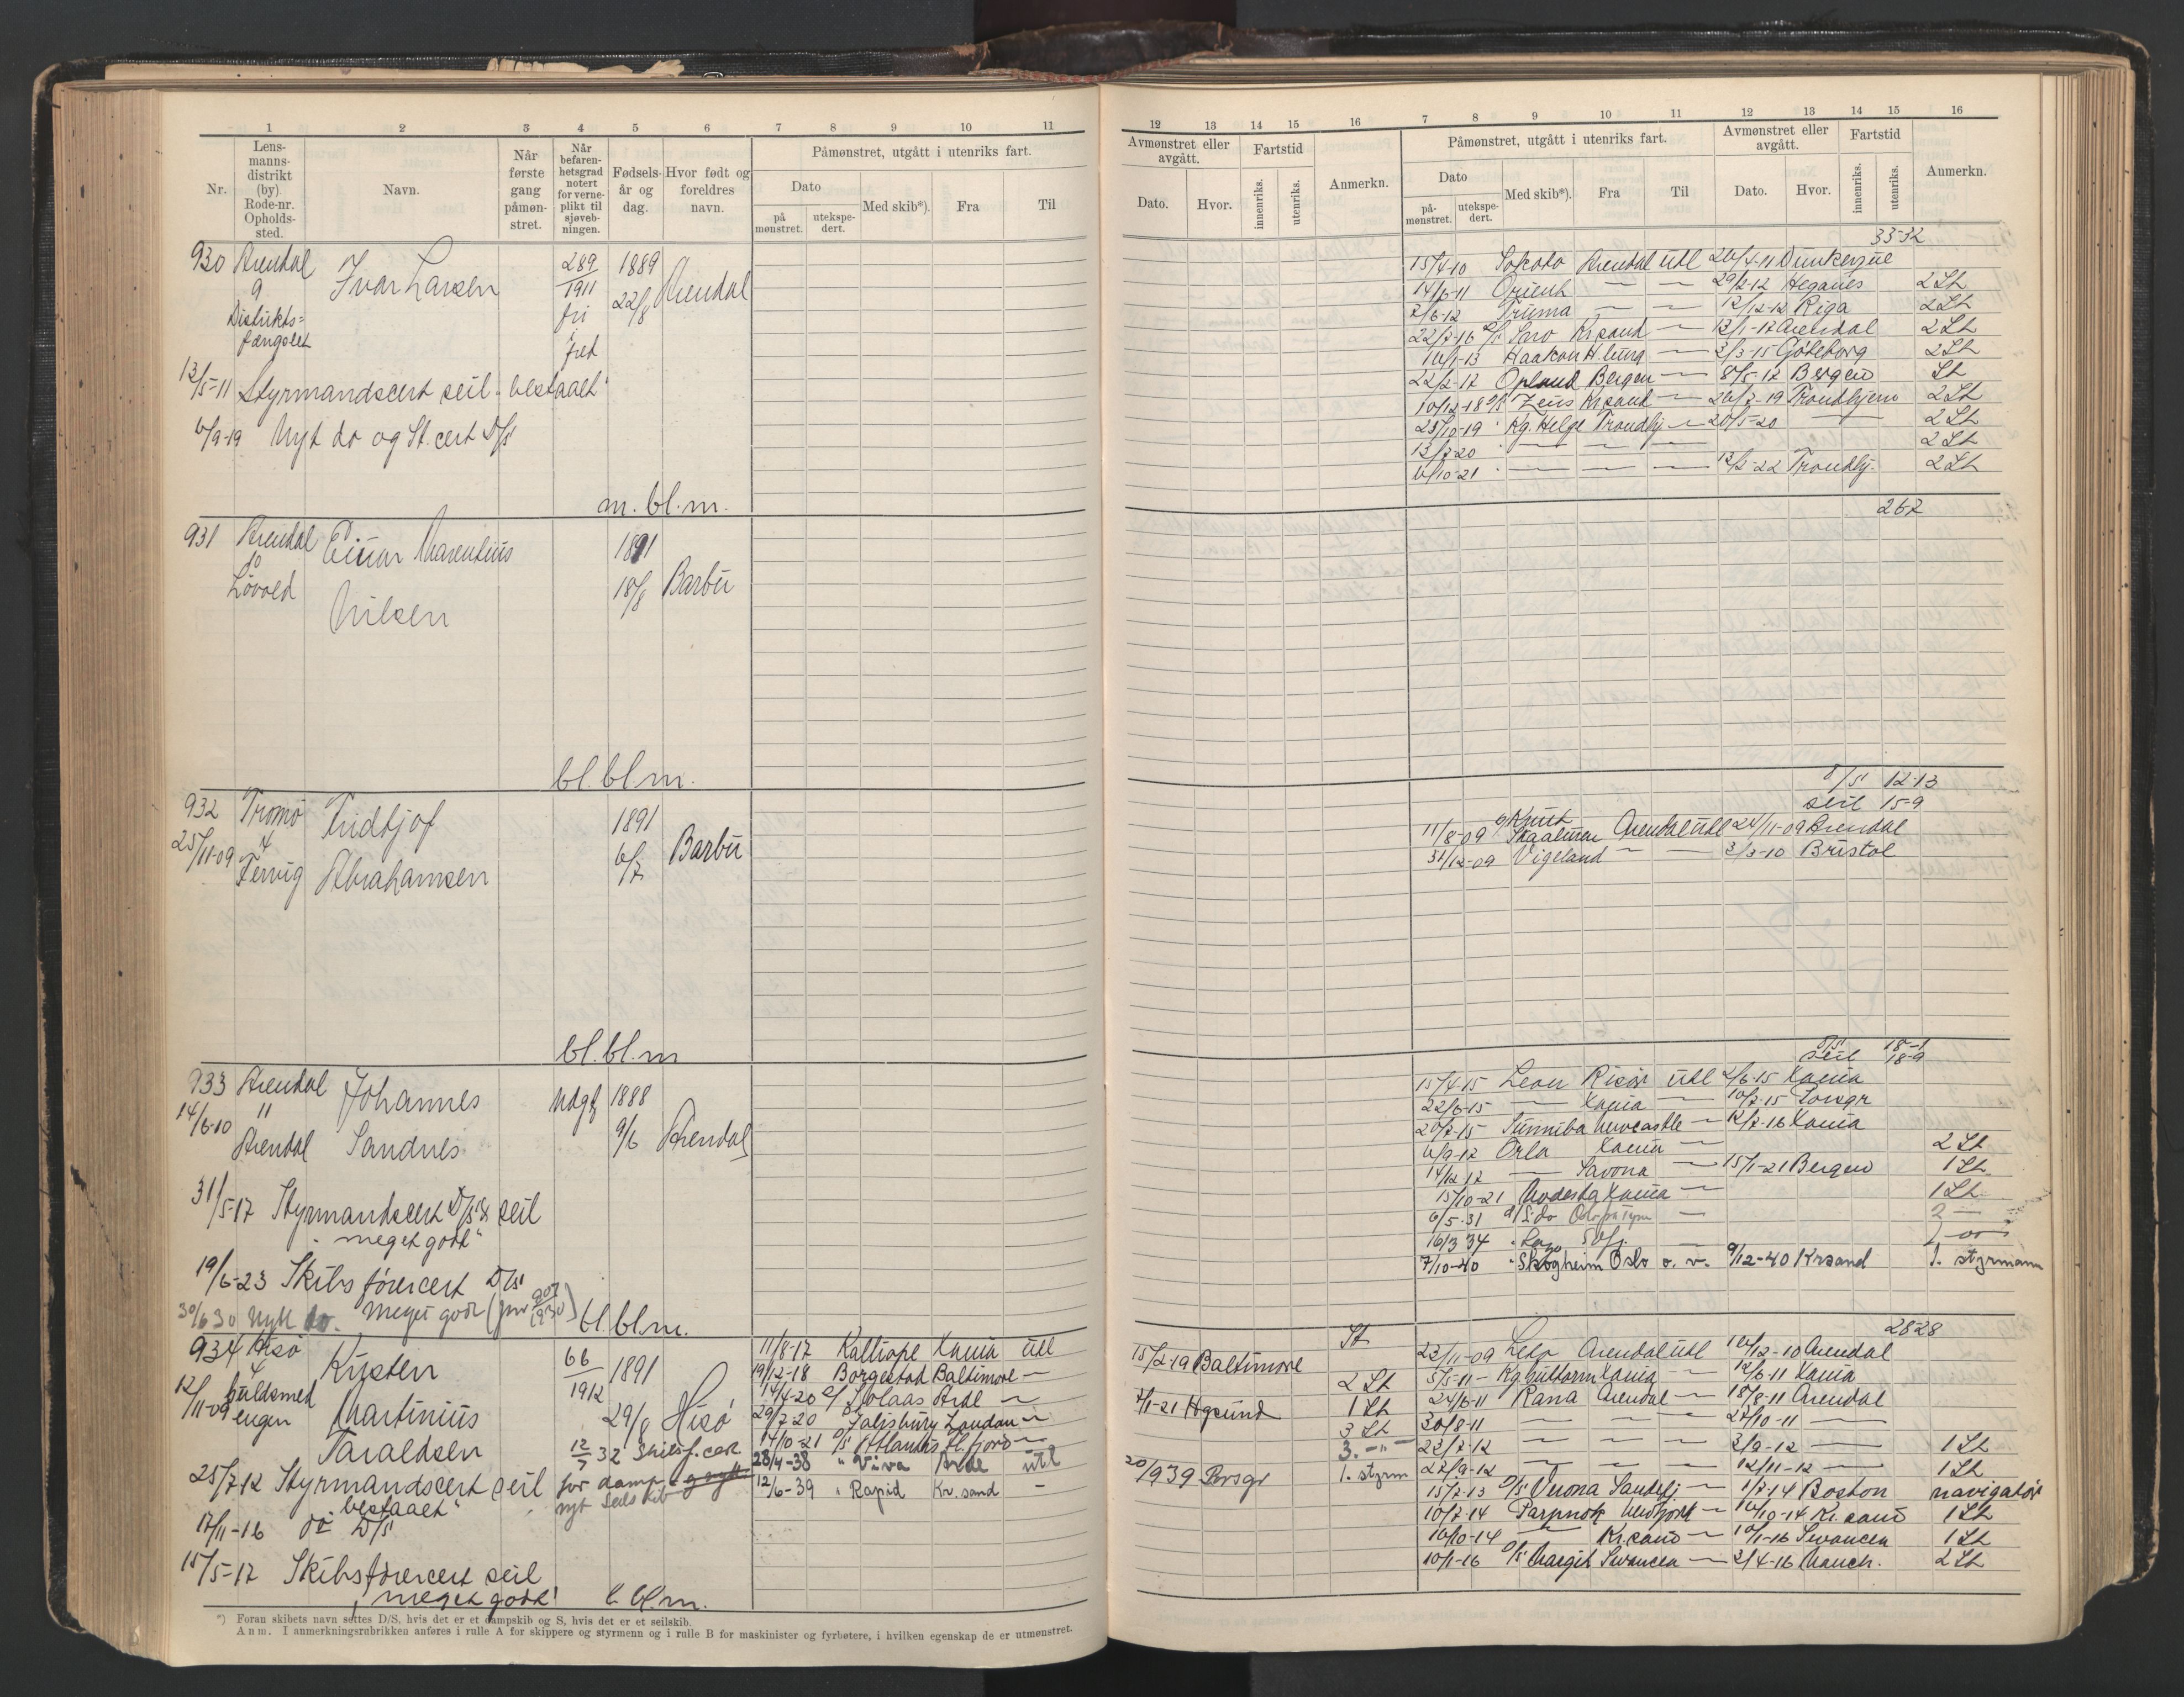 1 2 3 4 5 6 7 8 9 10 11
Nr.
Lens-
manns-
distrikt
(by).
Rode-nr.
Opholds-
sted.
Navn.
Når
første
gang
påmøn-
stret.
Når
befaren-
hetsgrad
notert
for verne-
plikt til
sjøveb-
ningen.
Fødsels-
år og
dag.
Hvor født og
foreldres
navn.
Påmønstret, utgått i utenriks fart.
Dato
på
mønstret.
utekspe-
dert.
Med skib*).
Fra
Til
930 Arendal
9
Distrikts=
fængslet
Ivar Larsen
289
1911
fri
1889
22/8
Arendal
13/5-11 Styrmandscert seil. bestaaet
6/9-19 Nyt do og St. cert D/S
m. bl. m.
931 Arendal
10
Einar Marentius
Nilsen
1891
18/8
Barbu
bl. bl. m.
932 Tromø
25/11-09 4
Fridtjof
Abrahamsen
1891
6/7
Barbu
bl. bl. m
933 Arendal
14/6-10 11
Arendal
Johannes
Sandnes
Udgf
1888
9/6
Arendal
31/5-17 Styrmandscert D/S & seil
"meget godt"
19/6-23 Skibsførercert D/S
30/6 30 Nytt do. meget godt
bl. bl. m.
934 Hisø
4
12/11-09
Guldsmed
engen
Kristen
Martinius
Taraldsen
66
1912
1891
29/8
Hisø
25/7-12 Styrmandscert seil
"bestaaet"
17/11-16 do D/S
15/5-17 Skibsførercert seil
"meget godt"
l. bl. m.
for damp
nytt Seilskib
11/8-17 Kalliope Xania utl
19/12-18 Borgestad Baltimore —
29/7-20 Salisbury London —
14/10-21 D/S Atlantis
28/4-38 " Viva Ardl utl
12/6-39 " Rapid Kr.sand —
*) Foran skibets navn settes D/S, hvis det er et dampskib og S, hvis det er et seilskib.
Anm. I anmerkningsrubrikken anføres i rulle A for skippere og styrmenn og i rulle B for maskinister og fyrbøtere, i hvilken egenskap de er utmønstret.
12 13 14 15 16 7 8 9 10 11 12 13 14 15 16
Avmønstret eller
avgått.
Dato.
Hvor.
Fartstid
innenriks.
utenriks.
Anmerkn.
Påmønstret, utgått i utenriks fart.
Dato
på-
mønstret.
utekspe-
dert.
Med skib*).
Fra
Til
Avmønstret eller
avgått.
Dato.
Hvor.
Fartstid
innenriks.
utenriks.
Anmerkn.
33-32
15/4-10 Sokoto Arendal utl 26/4-11 Dunkerque
14/6-11 Orient — — 29/2-12 Høganes 2 St
7/6-12 Truma — — 12/12-12 Riga 2 St
Kr.sand — 13/1-17 Arendal 2 St
Haakon H.burg — 3/3-15 Göteborg 2 St
22/2-17 Opland Bergen — 8/5-17 Bergen St
10/12-18 D/S Zeus Kr.sand — 26/7-19 Trondhjem 2 St
23/10-19 " Kg. Helge Trondhj — 20/5-20 — 2 St
13/7-20 " — — — 2 St
6/10-21 " — — — 13/2-22 Trondhj. 2 St
267
D/S 12-13
seil 15-9
11/8-09 Knut
Skaaluren Arendal utl 24/11-09 Arendal
31/12-09 Vigeland — — 3/3-10 Bristol
D/S 18-1
seil 18-9
15/4-15 Leon Risør utl 2/6-15 Xania
22/6-15 — Xania — 10/7-15 Porsgr
20/7-15 Sunniba Newcastle — 12/7-16 Xania
6/9-17 Orla Xania — 2 St
14/12 17 — Savona — 15/1-21 Bergen 1 St.
15/10-21 Modesta Xania — 1 St.
6/5-31 — 2 —
16/3 34
7/10-40 " Skogheim Oslo o. v. 9/12-40 Krsand 1. styrmann
28-28
15/2-19 Baltimore St
2 St
2/1-21 Hgsund 1 St
3 St
3. -"-
20/9 39 Porsgr 1. styrm
23/11-09 Leto Arendal utl 16/12-10 Arendal
5/5-11 — Kg. Guttorm Xania — 12/6-11 Xania
24/6-11 Rana Arendal — 18/8-11 Arendal
30/8-11 — — — 27/10-11 —
23/2-12 — — — 3/9-12 — 1 St
22/9-12 — — — 12/11-12 — 1 St
15/7-13 D/S Verona Sandefj — 1/7-14 Boston navigatør
10/7-14 — 10/10-14 Kr.sand 1 St
10/10-14 — Kr.sand — 10/1-16 Swansea 1 St
10/1-16 D/S Margit Swansea — 2/4-16 Manch. 2 St